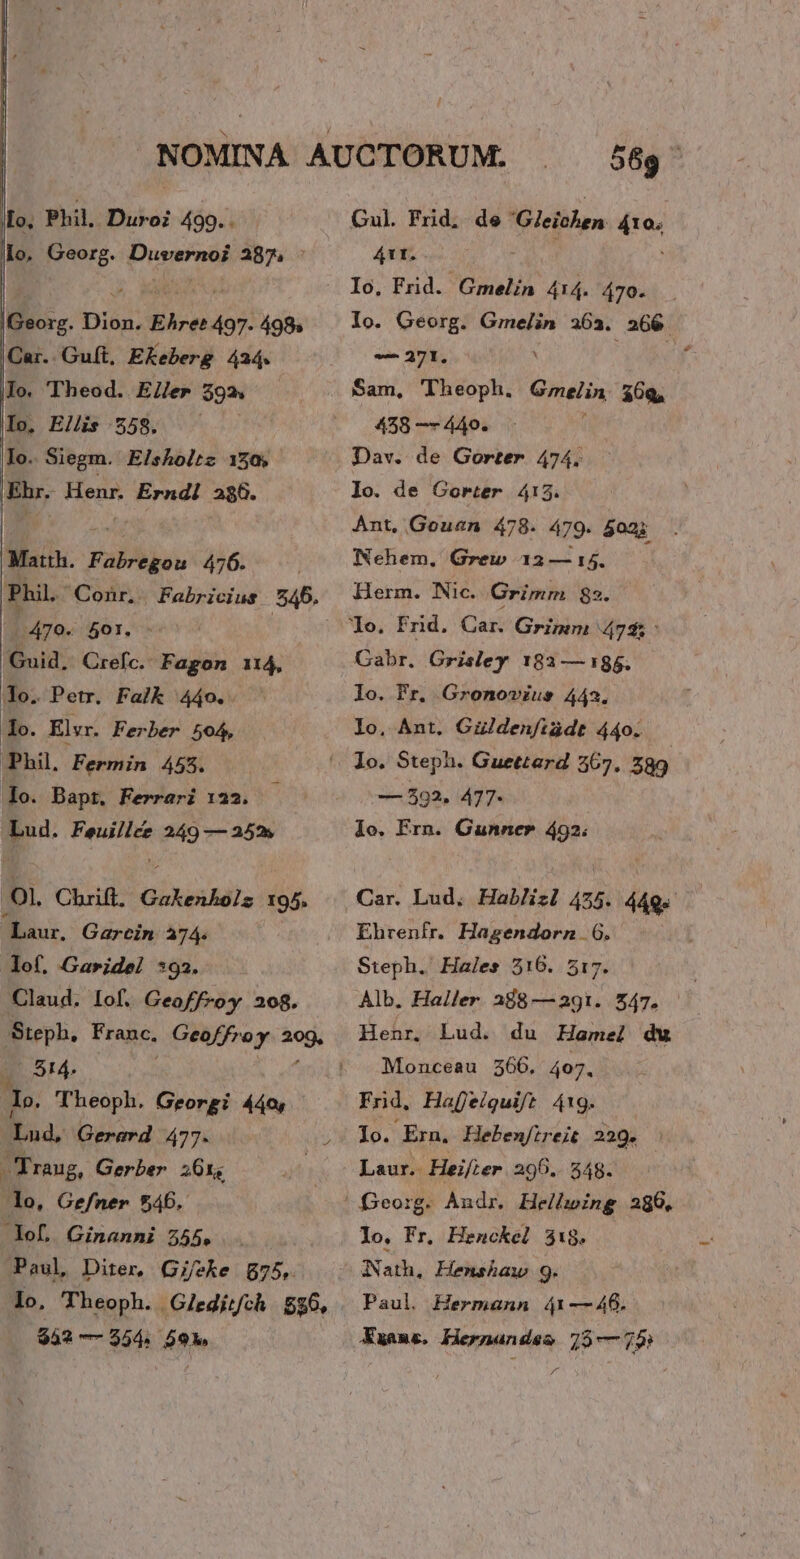 NOMINA AUCTORUM. 569
Io. Phil. Duroi 499.
Io. Georg. Duvernoi 287.
Georg. Dion. Ehret 497. 498.
Car. Guſt. Ekeberg 424.
Io. Theod. Eller 392.
Io. Ellis 358.
Io. Siegm. Elsholtz 130.
Ehr. Henr. Erndl 286.
Matth. Fabregou 476.
Phil. Conr. Fabricius 346.
470. 501.
Guid. Creſc. Fagon 114.
Io. Petr. Falk 440.
Io. Elvr. Ferber 504.
Phil. Fermin 453.
Io. Bapt. Ferrari 122.
Lud. Feuillée 249 — 252.
Ol. Chriſt. Gakenholz 195.
Laur. Garcin 274.
Ioſ. Garidel 292.
Claud. Ioſ. Geoffroy 208.
Steph. Franc. Geoffroy 209.
314.
Io. Theoph. Georgi 440.
Lud. Gerard 477.
Traug. Gerber 261.
Io. Geſner 346.
Ioſ. Ginanni 355.
Paul. Diter. Giſeke 375.
Io. Theoph. Gleditſch 336.
352 — 354. 501.
Gul. Frid. de Gleichen 410.
411.
Io. Frid. Gmelin 414. 470.
Io. Georg. Gmelin 262. 266
— 271.
Sam. Theoph. Gmelin 369.
438 — 440.
Dav. de Gorter 474.
Io. de Gorter 413.
Ant. Gouan 478. 479. 502.
Nehem. Grew 12 — 15.
Herm. Nic. Grimm 82.
Io. Frid. Car. Grimm 472.
Gabr. Grisley 182 — 186.
Io. Fr. Gronovius 442.
Io. Ant. Güldenſtädt 440.
Io. Steph. Guettard 367. 389
— 392. 477.
Io. Ern. Gunner 492.
Car. Lud. Hablizl 435. 449.
Ehrenfr. Hagendorn 6.
Steph. Hales 316. 317.
Alb. Haller 288 — 291. 347.
Henr. Lud. du Hamel du
Monceau 366. 407.
Frid. Haſſelquiſt 419.
Io. Ern. Hebenſtreit 229.
Laur. Heiſter 296. 348.
Georg. Andr. Hellwing 286.
Io. Fr. Henckel 318.
Nath. Henshaw 9.
Paul. Hermann 41 — 46.
Franc. Hernandes 73 — 75.